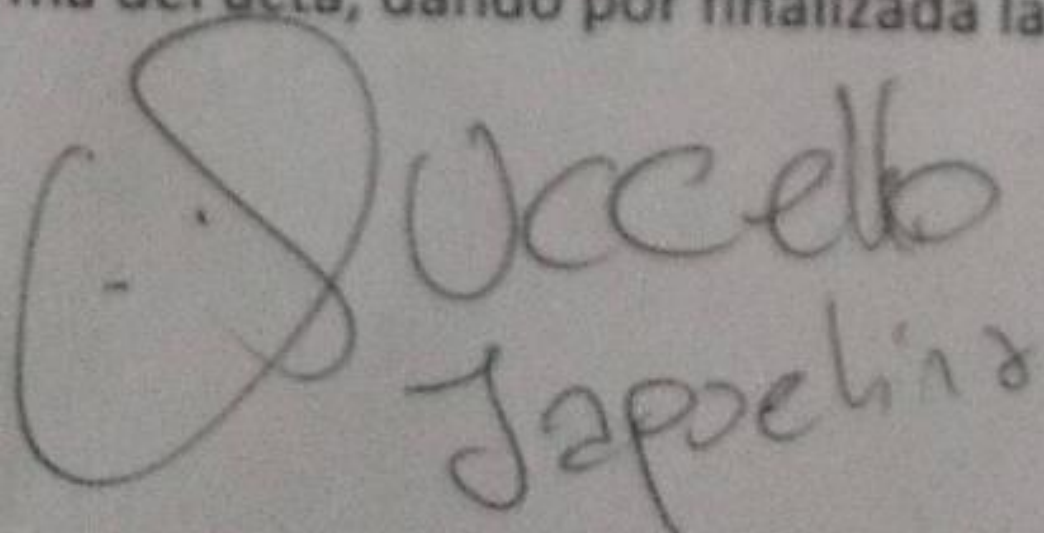 ma del acta, dando por finalizada la
Uccello
Japoelina